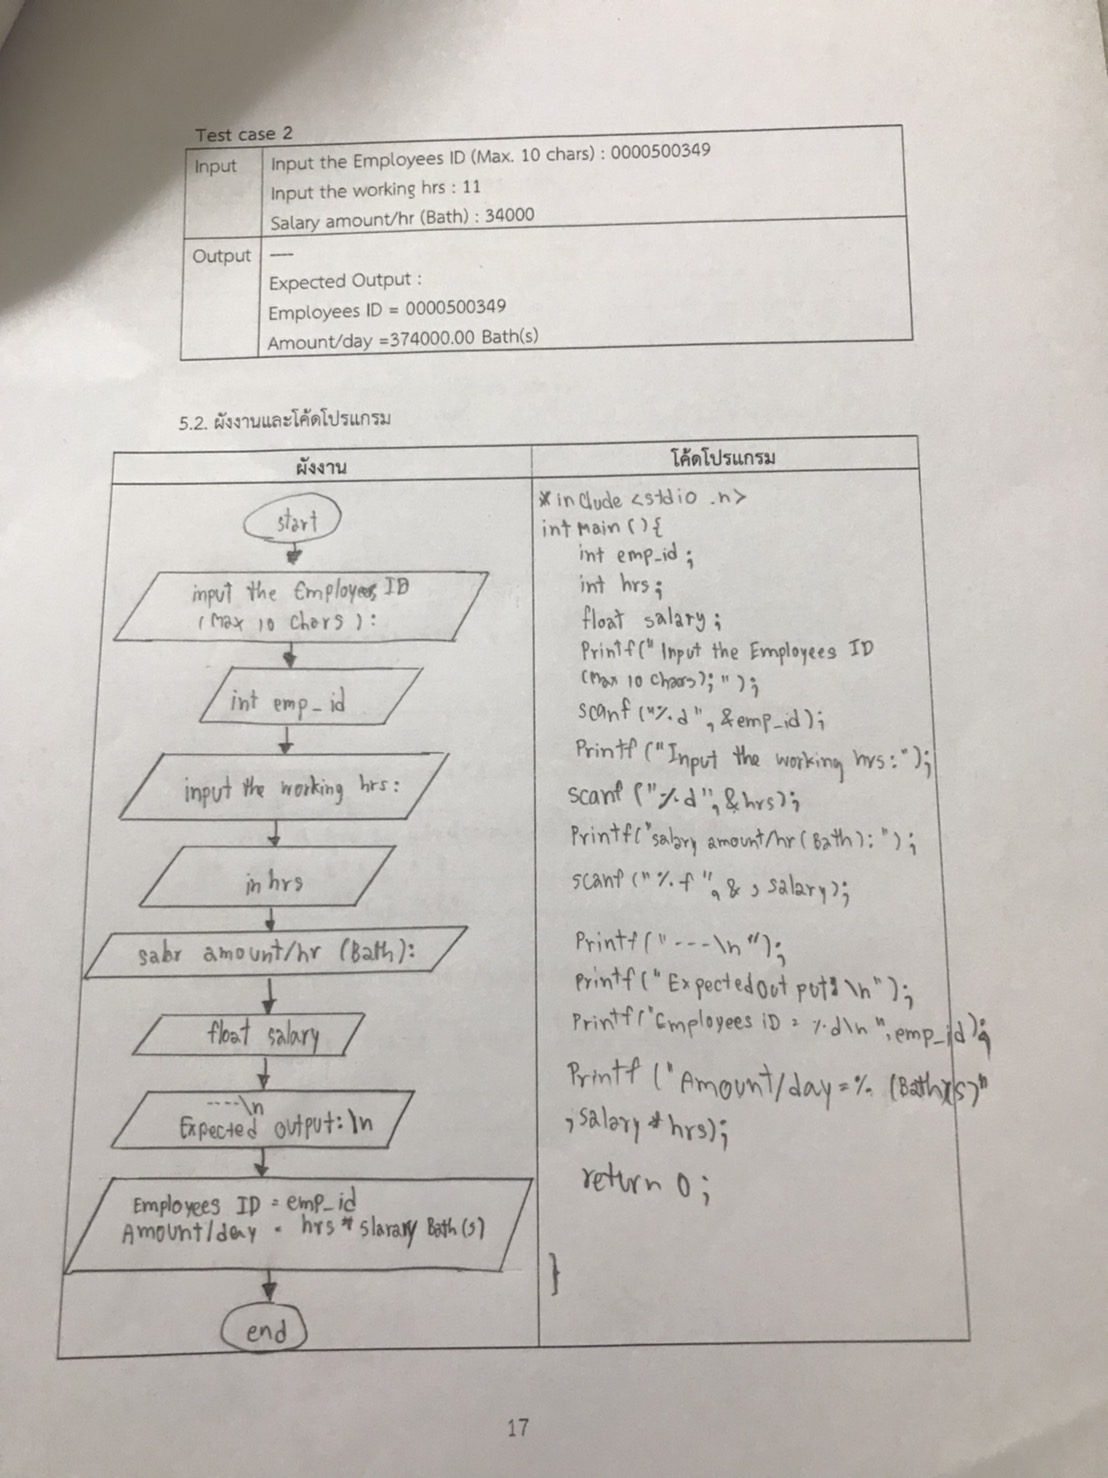 Test case 2
Input
Input the Employees ID (Max. 10 chars) : 0000500349
Input the working hrs : 11
Salary amount/hr (Bath) : 34000
Output
----
Expected Output :
Employees ID = 0000500349
Amount/day =374000.00 Bath(s)
5.2. ผังงานและโค้ดโปรแกรม
ผังงาน
start
input the Employees ID
(Max 10 Chars ) :
int emp_id
input the working hrs :
in hrs
salar amount/hr (Bath):
float salary
----\n
Expected output:\n
Employees ID = emp_id
Amount/day = hrs * slarary Bath(s)
end
โค้ดโปรแกรม
include <stdio .h>
int main () {
int emp_id ;
int hrs ;
float salary ;
Printf(" Input the Employees ID
(Max 10 Chars); ") ;
scanf ("%d" , &emp_id);
Printf ("Input the working hrs:");
scanf ("%d", &hrs);
Printf("salary amount/hr (Bath): ") ;
scanf (" %f ", & , salary);
Printf (" ---\n ");
Printf (" Expected Out put: \n ");
Printf ("Employees iD = %d\n ", emp_id );
Printf ("Amount/day = % (Bath)(s)"
, salary * hrs);
return 0 ;
}
17